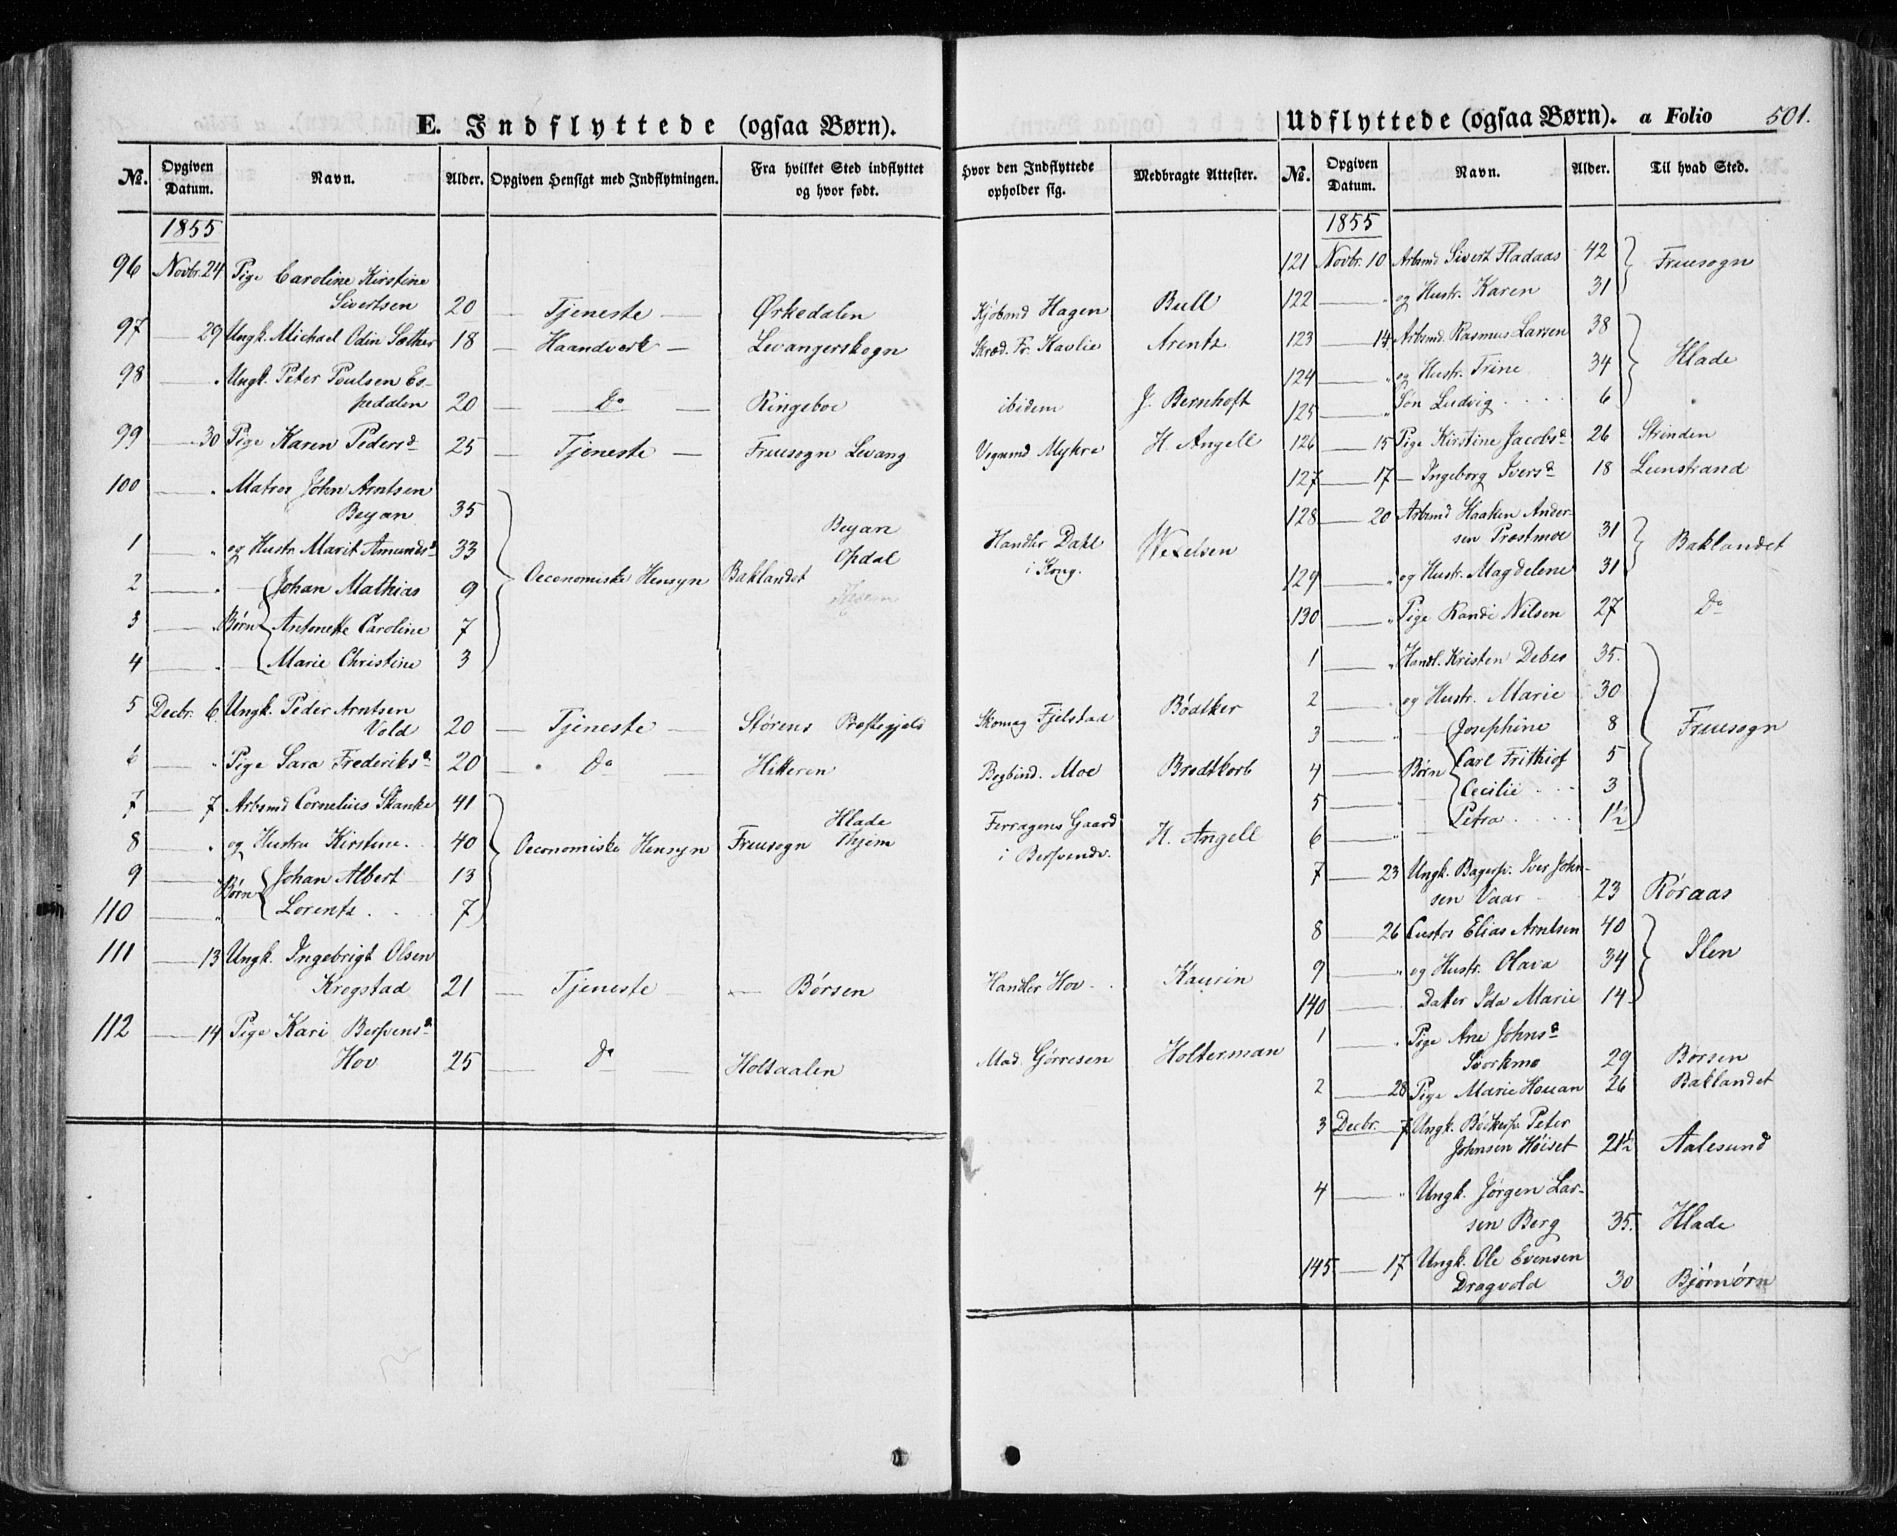 E. Indflyttede (ogsaa Børn).
No. Opgiven Datum. Navn. Alder. Opgiven Hensigt med Indflytningen. Fra hvilket Sted indflyttet og hvor født. Hvor den Indflyttede opholder sig. Medbragte Attester.
1855
96 Novbr. 24 Pige Caroline Kirstine
Sivertsen 20 — Tjeneste — Ørkedalen Kjøbmd Hagen Bull
97 — 29 Ungk. Michael Odin Sæther 18 — Haandverk — Levangerskogn Skræd. Fr. Havlie Arentz
98 — " Ungk. Peter Poulsen Es-
peddlen 20 — Do — Ringeboe ibidem J. Bernhoft
99 — 30 Pige Karen Pedersd 25 — Tjeneste — Fruesogn Levang Vognmd Myhre H. Angell
100 — " Matros John Arntsen
Beyan 35 Beyan
1 — " og Hustr. Marit Amundsd 33 Opdal Handler Dahl Wexelsen
2 — " Johan Mathias 9 Oeconomiske Hensyn Baklandet i Kong.
3 — " Børn Antonette Caroline 7
4 — " Marie Christine 3
5 Decbr. 6 Ungk. Peder Arntsen
Vold 20 — Tjeneste — Størens Præstegjeld Skomag Fjelstad Bødtker
6 — " Pige Sara Frederiksd 20 — " Do — Hitteren Bogbind. Moe Brodtkorb
7 — 7 Arbsmd Cornelius Skanke 41 Hlade Ferragens Gaard
8 — " og Hustru Kirstine. 40 Oeconomiske Hensyn Fruesogn Thjem i Berfvendv. H. Angell
9 — Børn Johan Albert 13
110 — " Lorents . . . 7
111 — 13 Ungk. Ingebrigt Olsen
Krogstad 21 — Tjeneste — — Børsen Handler Hov . . Kaurin
112 — 14 Pige Kari Berfvensd
Hov 25 — Do — Holtaalen Mad. Görresen Holterman
Udflyttede (ogsaa Børn). a Folio 501.
No. Opgiven Datum. Navn. Alder. Til hvad Sted.
1855
121 Novbr. 10 Arbsmd Sivert Fladaas 42 Fruesogn
122 — " og Hustr. Karen 31
123 — 14 Arbsmd. Rasmus Larsen 38
124 — " og Hustr. Trine 34 Hlade
125 — " Søn Ludvig . . . . 6
126 — 15 Pige Kirstine Jacobsd 26 Strinden
127 — 17 — Ingeborg Iversd 18 Leinstrand
128 — 20 Arbsmd Haaken Ander-
sen Præstmoe 31 Baklandet
129 — " og Hustr. Magdelene 31
130 — " Pige Randi Nilsen 27 Do
1 — " Handl. Kristen Debes 35.
2 — " og Hustr. Marie 30
3 — " Josephine 8 Fruesogn
4 — " Børn Carl Frithiof 5
5 — " Cecilie . . . 3
6 — " Petra . . . . 1½
7 — 23 Ungk. Bagersv. Iver John-
sen Vaar 23 Røraas
8 — 26 Custos Elias Arntsen 40
9 — " og Hustr. Olava 34 Ilen
140 — " Datter Ida Marie 14
1 — " Pige Ane Johnsd
Svorkmo 29 Børsen
2 — 28 Pige Marie Houan 26 Baklandet
3 Decbr. — 7 Ungk. Bødkersv. Peter
Johnsen Høiset 21½ Aalesund
4 — " Ungk. Jørgen Lar-
sen Berg 35. Hlade
145 — 17 Ungk. Ole Evensen
Dragvold 30 Bjørnørn